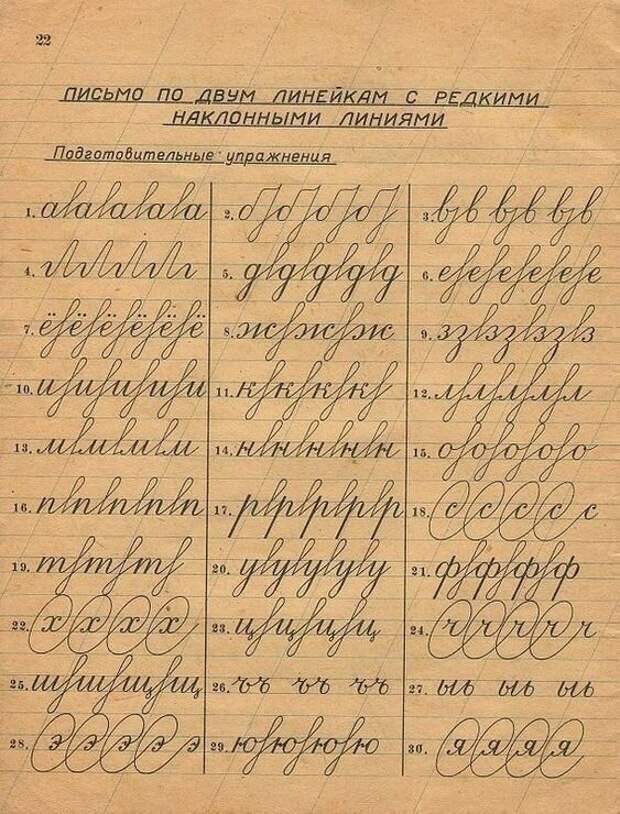 22
ПИСЬМО ПО ДВУМ ЛИНЕЙКАМ С РЕДКИМИ
НАКЛОННЫМИ ЛИНИЯМИ
Подготовительные упражнения
1. аlаlаlаlа 2. б б б б 3. в в в
4. г г г г 5. дlдlдlдlд 6. е е е е е е
7. ё ё ё ё ё ё 8. ж ж ж 9. з з з з
10. и и и и и 11. к к к к 12. л л л л л
13. м м м м 14. н н н н н 15. о о о о о
16. п п п п п 17. р р р р р 18. с с с с с
19. т т т т 20. у у у у у 21. ф ф ф ф
22. х х х х 23. ц ц ц ц 24. ч ч ч ч ч
25. ш ш щ щ 26. ъь ъь ъь 27. ыь ыь ыь
28. э э э э э 29. ю ю ю ю 30. я я я я